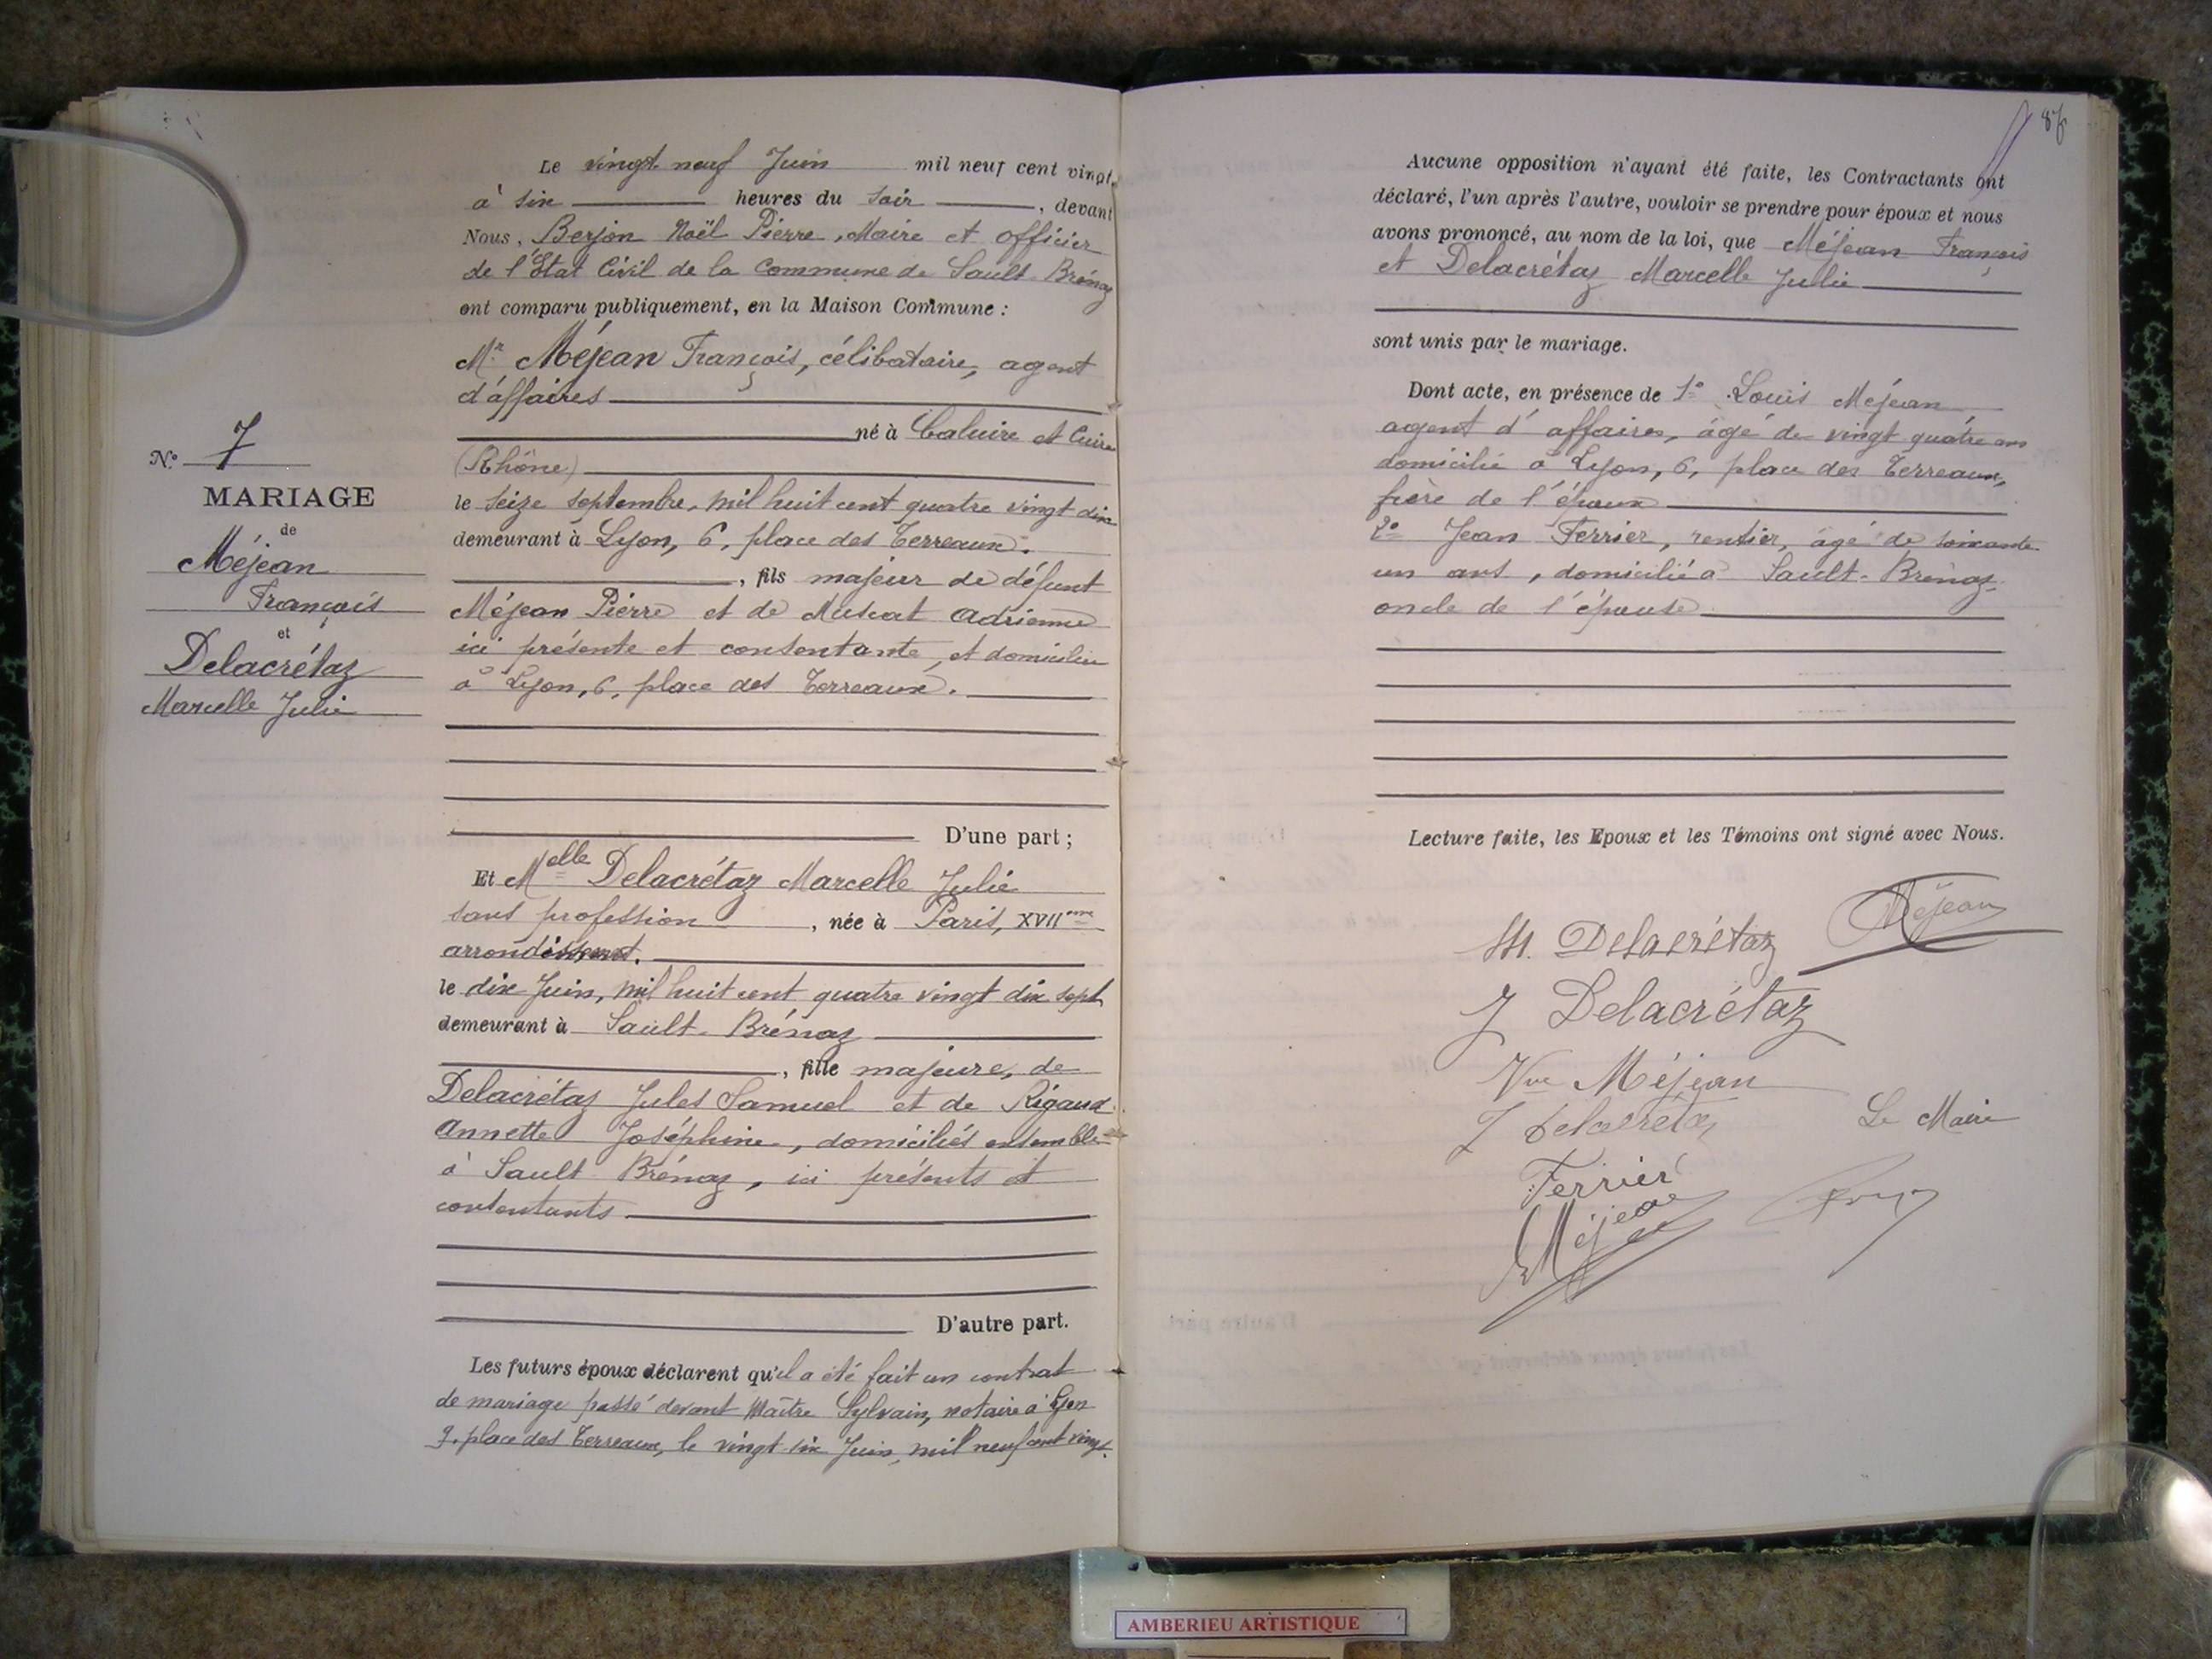 N° 7
MARIAGE
de
Méjean
François
et
Delacrétaz
Marcelle Julie
Le vingt neuf Juin mil neuf cent vingt
à six heures du soir, devant
Nous, Berjon Noël Pierre, Maire et officier
de l'État Civil de la Commune de Sault-Brénaz
ont comparu publiquement, en la Maison Commune :
Mr Méjean François, célibataire, agent
d'affaires
né à Caluire et Cuire
(Rhône)
le seize septembre, mil huit cent quatre vingt dix
demeurant à Lyon, 6, place des Terreaux.
, fils majeur de défunt
Méjean Pierre et de Muscat Adrienne
ici présente et consentante, et domiciliée
à Lyon, 6, place des Terreaux.
D'une part ;
Et Melle Delacrétaz Marcelle Julie
sans profession, née à Paris, XVIIème
arrondissement.
le dix Juin, mil huit cent quatre vingt dix sept
demeurant à Sault-Brénaz
, fille majeure, de
Delacrétaz Jules Samuel et de Rigaud
Annette Joséphine, domiciliés ensemble
à Sault-Brénaz, ici présents et
consentants
D'autre part.
Les futurs époux déclarent qu'il a été fait un contrat
de mariage passé devant Maître Sylvain, notaire à Lyon
9, place des Terreaux, le vingt-six Juin, mil neuf cent vingt.
Aucune opposition n'ayant été faite, les Contractants ont
déclaré, l'un après l'autre, vouloir se prendre pour époux et nous
avons prononcé, au nom de la loi, que Méjean François
et Delacrétaz Marcelle Julie
sont unis par le mariage.
Dont acte, en présence de 1° Louis Méjean,
agent d'affaires, âgé de vingt quatre ans
domicilié à Lyon, 6, place des Terreaux,
frère de l'époux
2° Jean Ferrier, rentier, âgé de soixante
un ans, domicilié à Sault-Brénaz
oncle de l'épouse
Lecture faite, les Epoux et les Témoins ont signé avec Nous.
M. Delacrétaz Méjean
J Delacrétaz
Vve Méjean
J Delacrétaz Le Maire
Ferrier
Méjean
AMBERIEU ARTISTIQUE